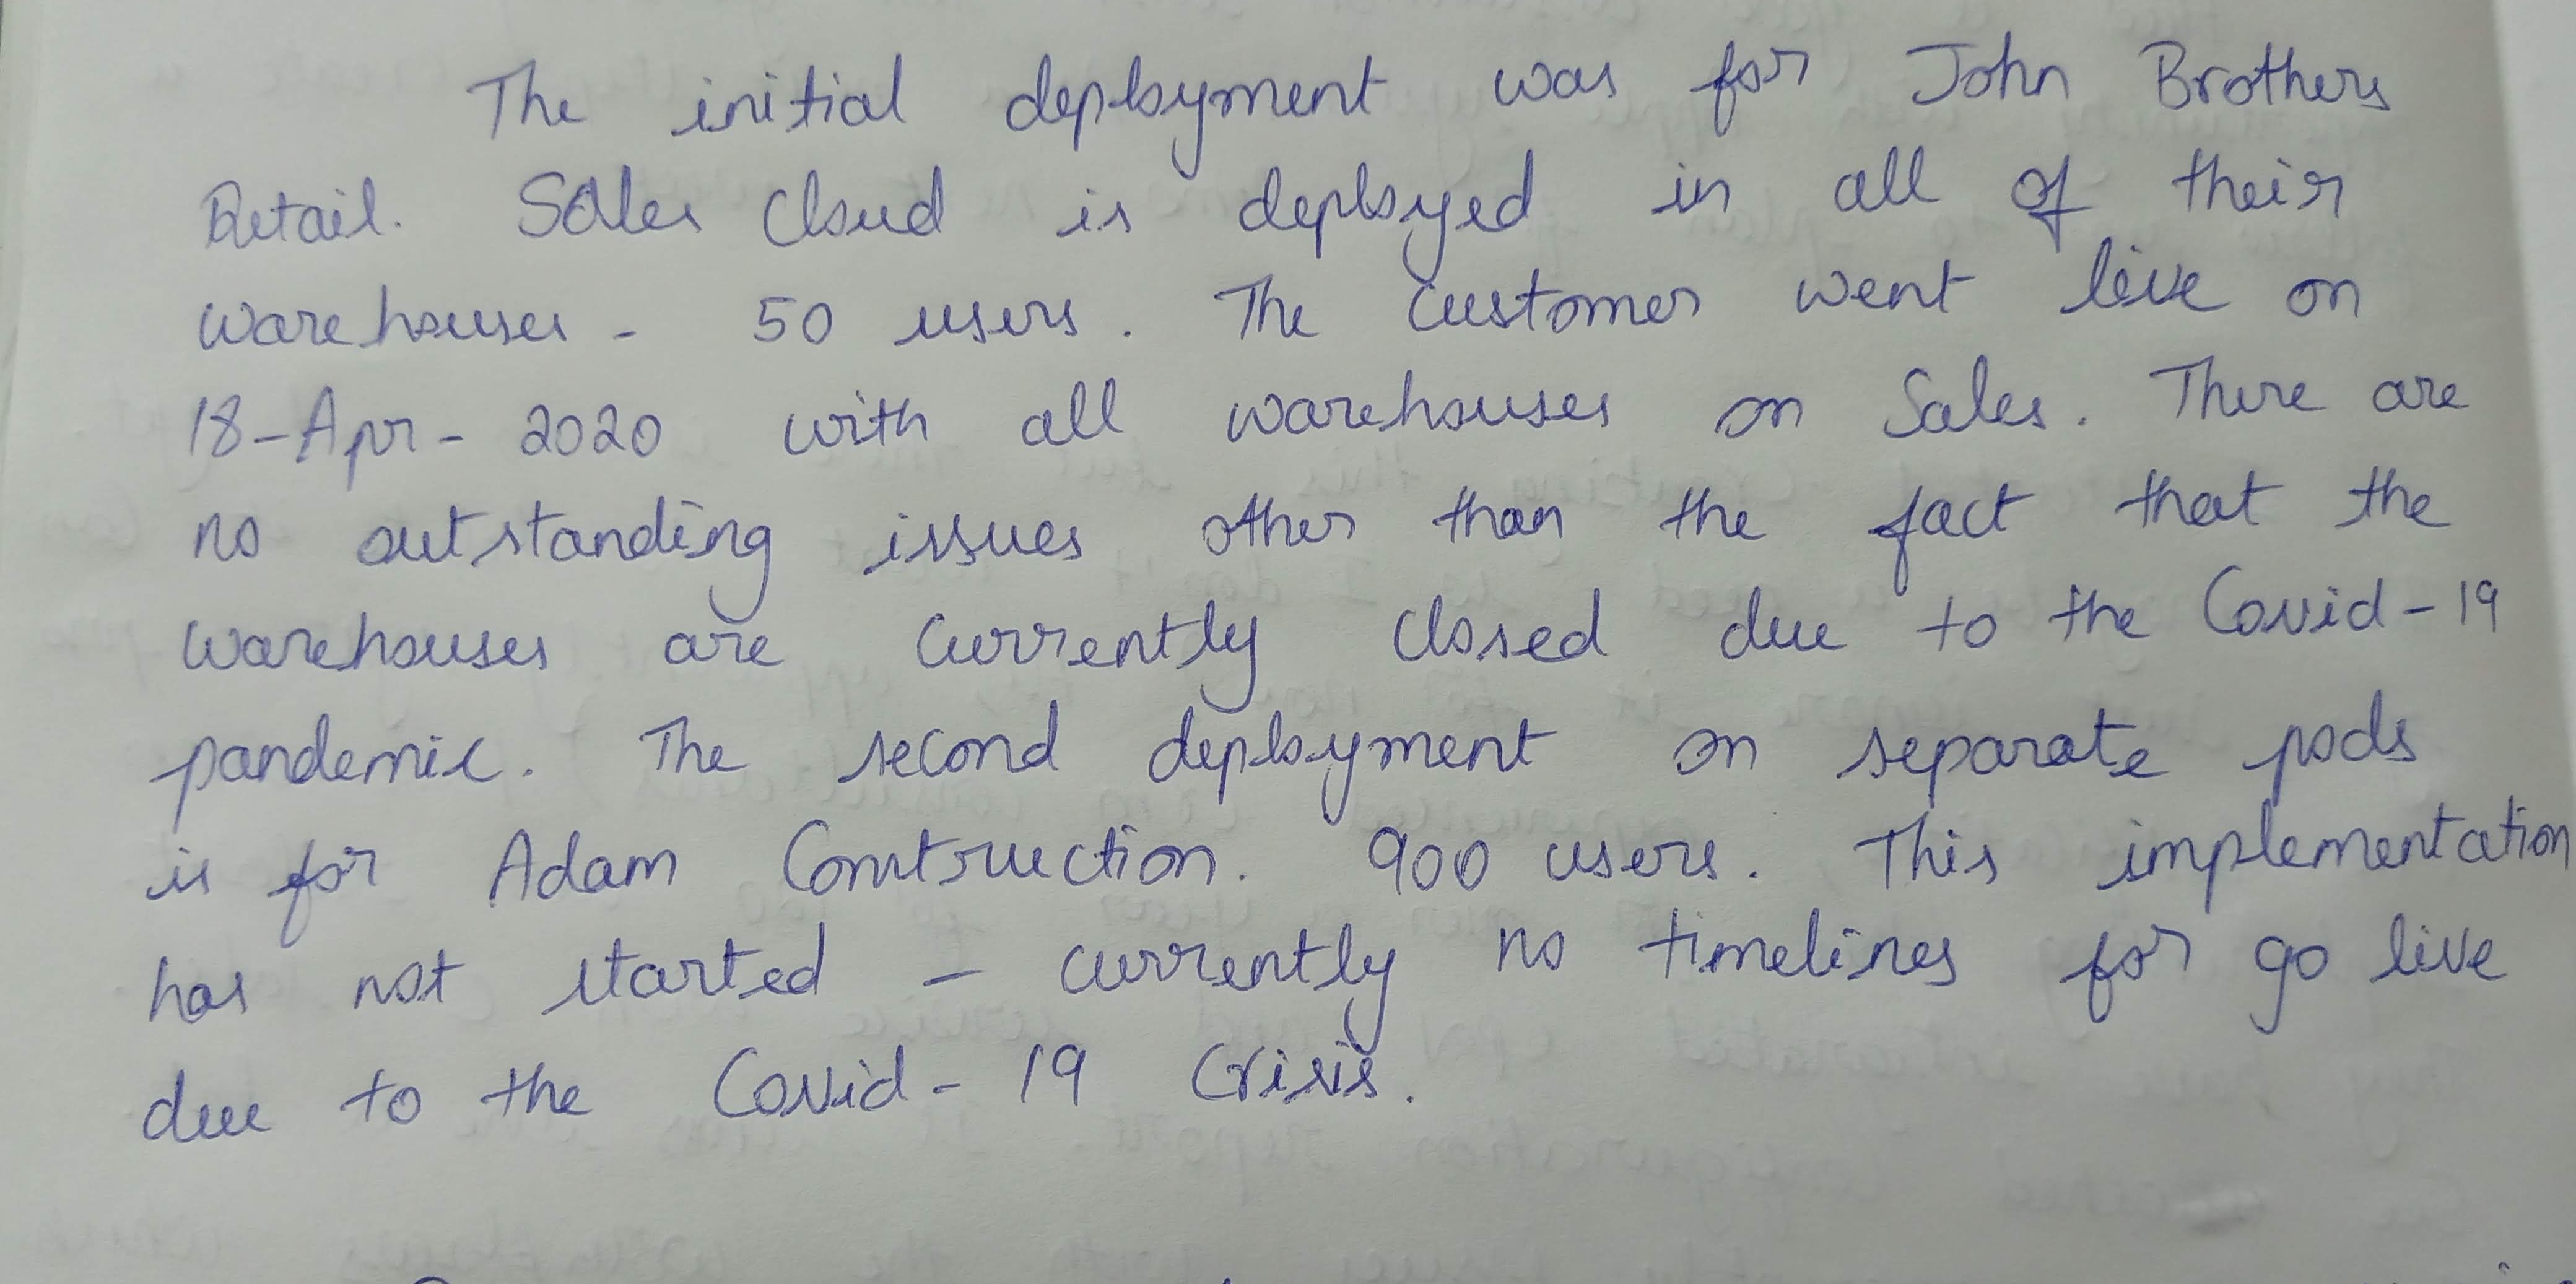 The initial deployment was for John Brothers
Retail. Sales Cloud is deployed in all of their
warehouses - 50 users. The customer went live on
18-Apr-2020 with all warehouses on Sales. There are
no outstanding issues other than the fact that the
warehouses are currently closed due to the Covid-19
pandemic. The second deployment on separate pods
is for Adam Construction. 900 users. This implementation
has not started - currently no timelines for go live
due to the Covid-19 Crisis.